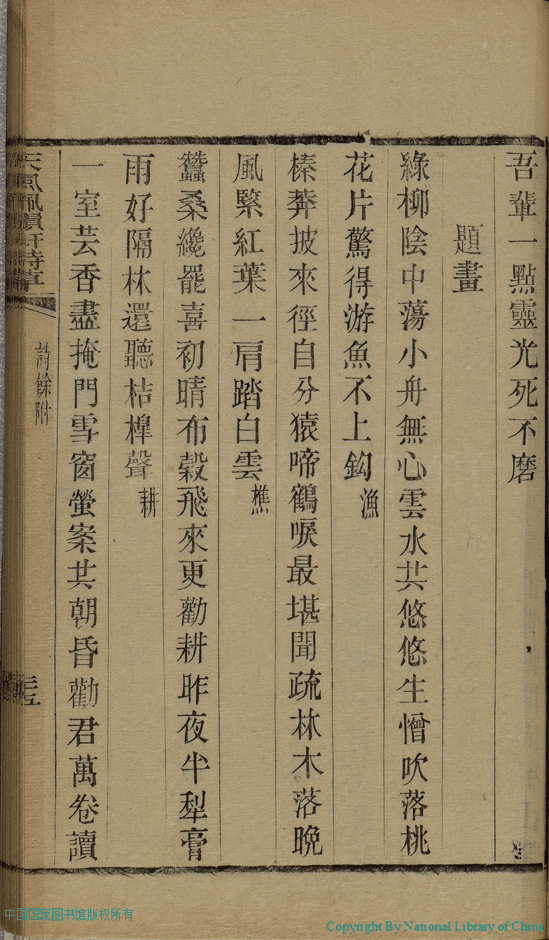 吾輩一點靈光死不磨
題畫
綠柳陰中蕩小舟無心雲水共悠悠生憎吹落桃
花片驚得游魚不上鈎漁
榛莽披來徑自分猿啼鶴唳最堪聞疏林木落晚
風緊紅葉一肩踏白雲樵
蠶桑纔罷喜初晴布穀飛來更勸耕昨夜半犁膏
雨好隔林還聽桔槔聲耕
一室芸香盡掩門雪窗螢案共朝昏勸君萬卷讀
詩餘附
中国国家图书馆版权所有
Copyright By National Library of China